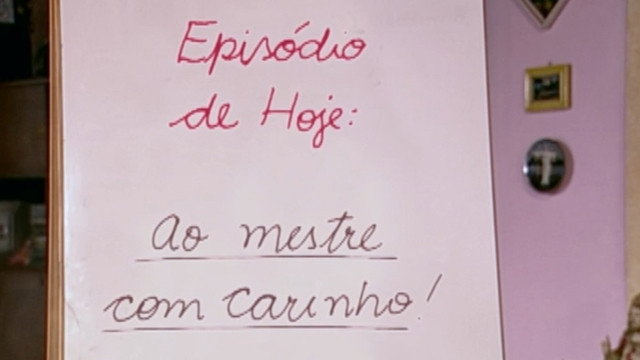 Episódio
de Hoje:
Ao mestre
com carinho!